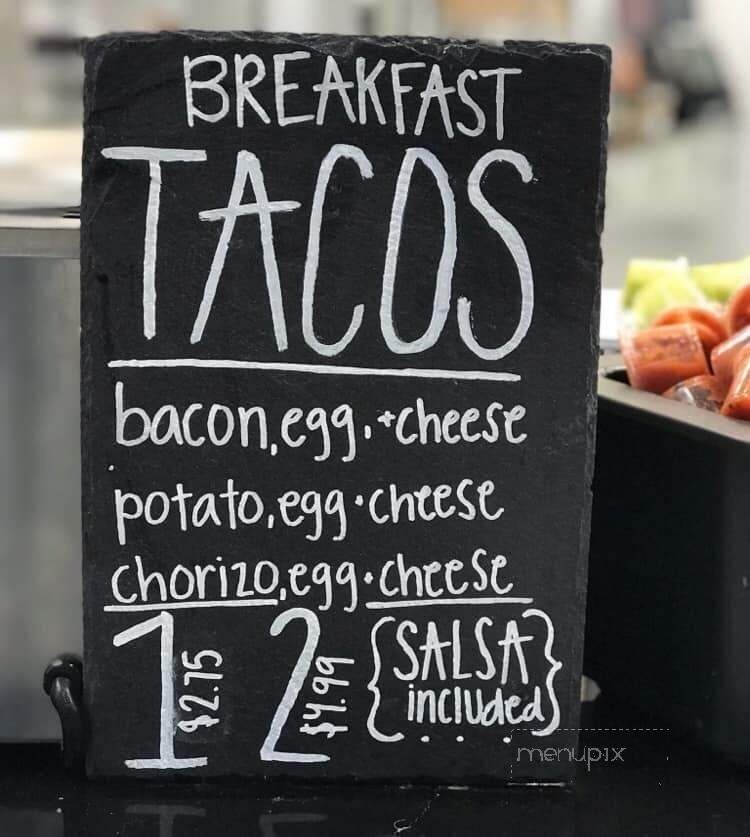 BREAKFAST
TACOS
bacon, egg, + cheese
potato, egg + cheese
chorizo, egg + cheese
1 $2.75 2 $4.99 {SALSA included}
menupix